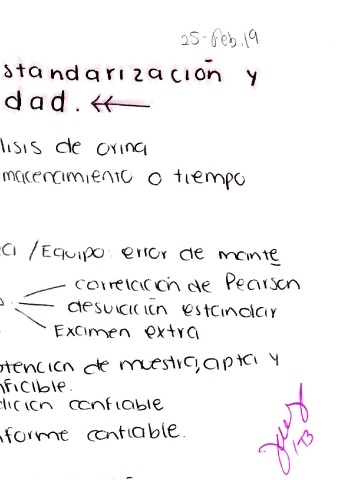 25-feb.19
standarización y
dad.
lisis de orina
macenamiento o tiempo
ca /Equipo: error de mante
correlación de Pearson
desviación estándar
Examen extra
otención de muestra, apta y
ficible.
dición confiable
forme confiable.